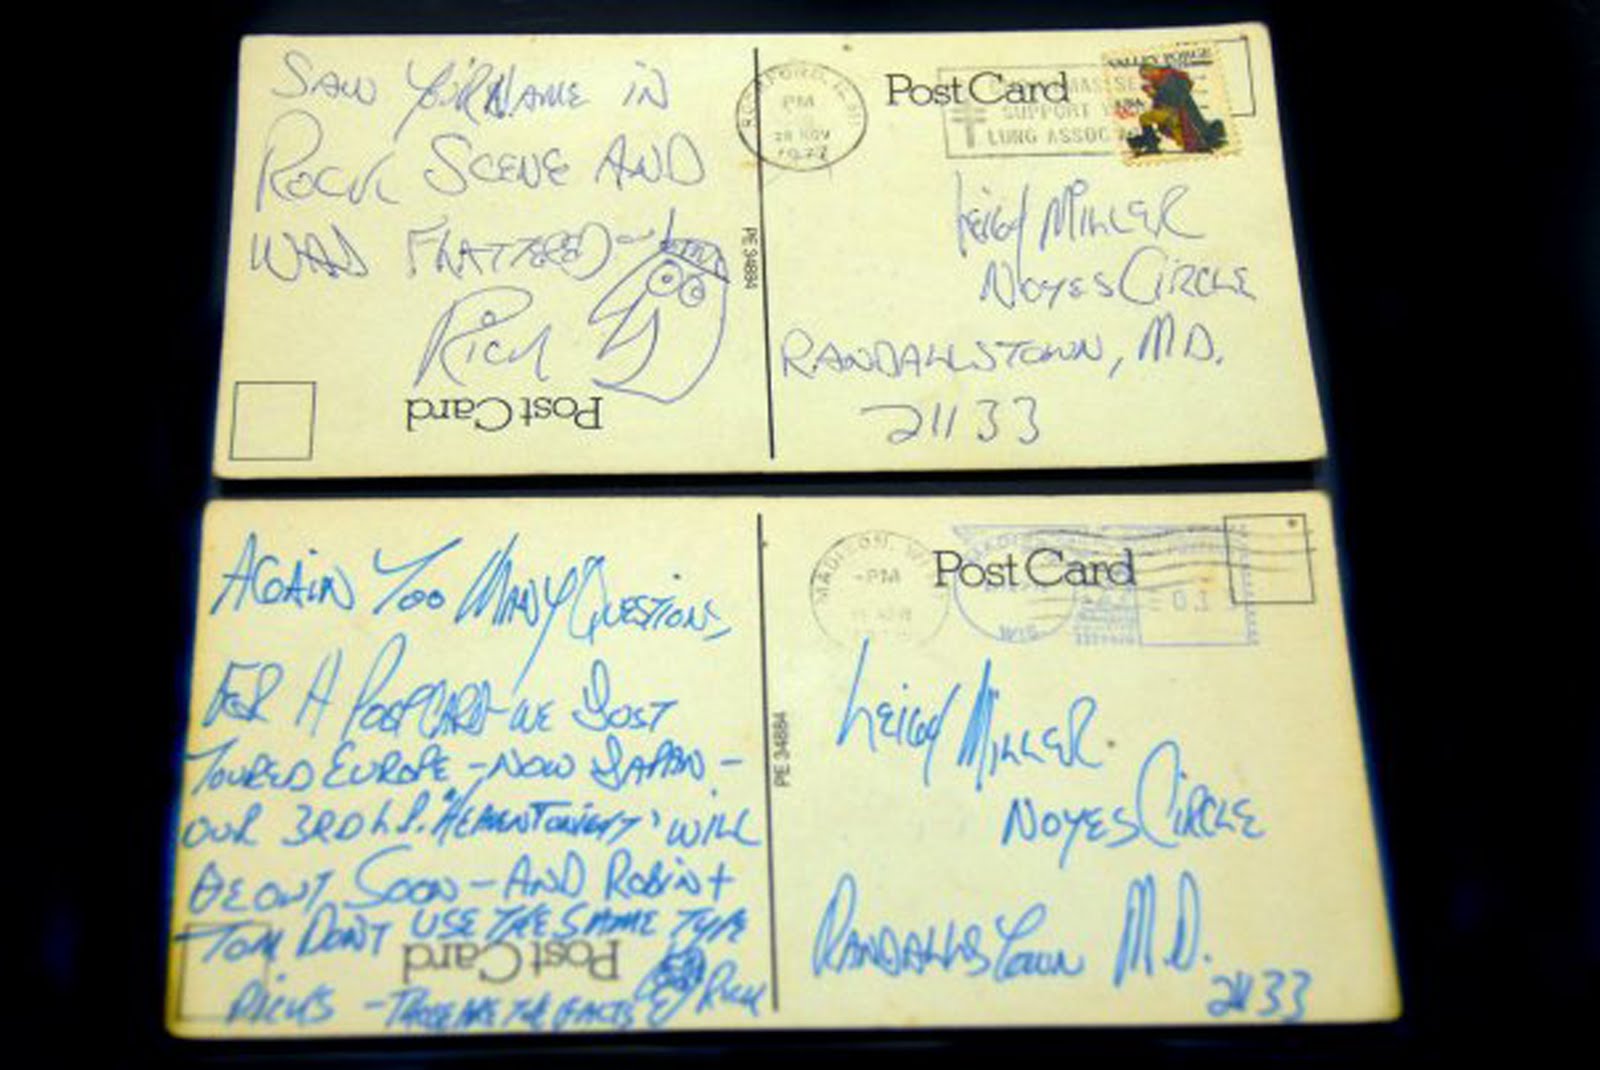 SAW YOUR NAME IN
ROCK SCENE AND
WAS FLATTERED—
RICK
Post Card
PE 34884
ROCKFORD, ILL
PM
28 NOV
1977
Post Card
SUPPORT
LUNG ASSOC
VALLEY FORGE
LEIGH MILLER
NOYES CIRCLE
RANDALLSTOWN, MD.
21133
AGAIN TOO MANY QUESTIONS
FOR A POSTCARD—WE JUST
TOURED EUROPE—NOW JAPAN—
OUR 3RD L.P. "HEAVEN TONIGHT" WILL
BE OUT SOON—AND ROBIN +
TOM DON'T USE THE SAME TYPE
PICKS —THOSE ARE THE FACTS RICK
Post Card
PE 34884
MADISON, WI
PM
Post Card
WIS
LEIGH MILLER
NOYES CIRCLE
RANDALLSTOWN M.D.
21133